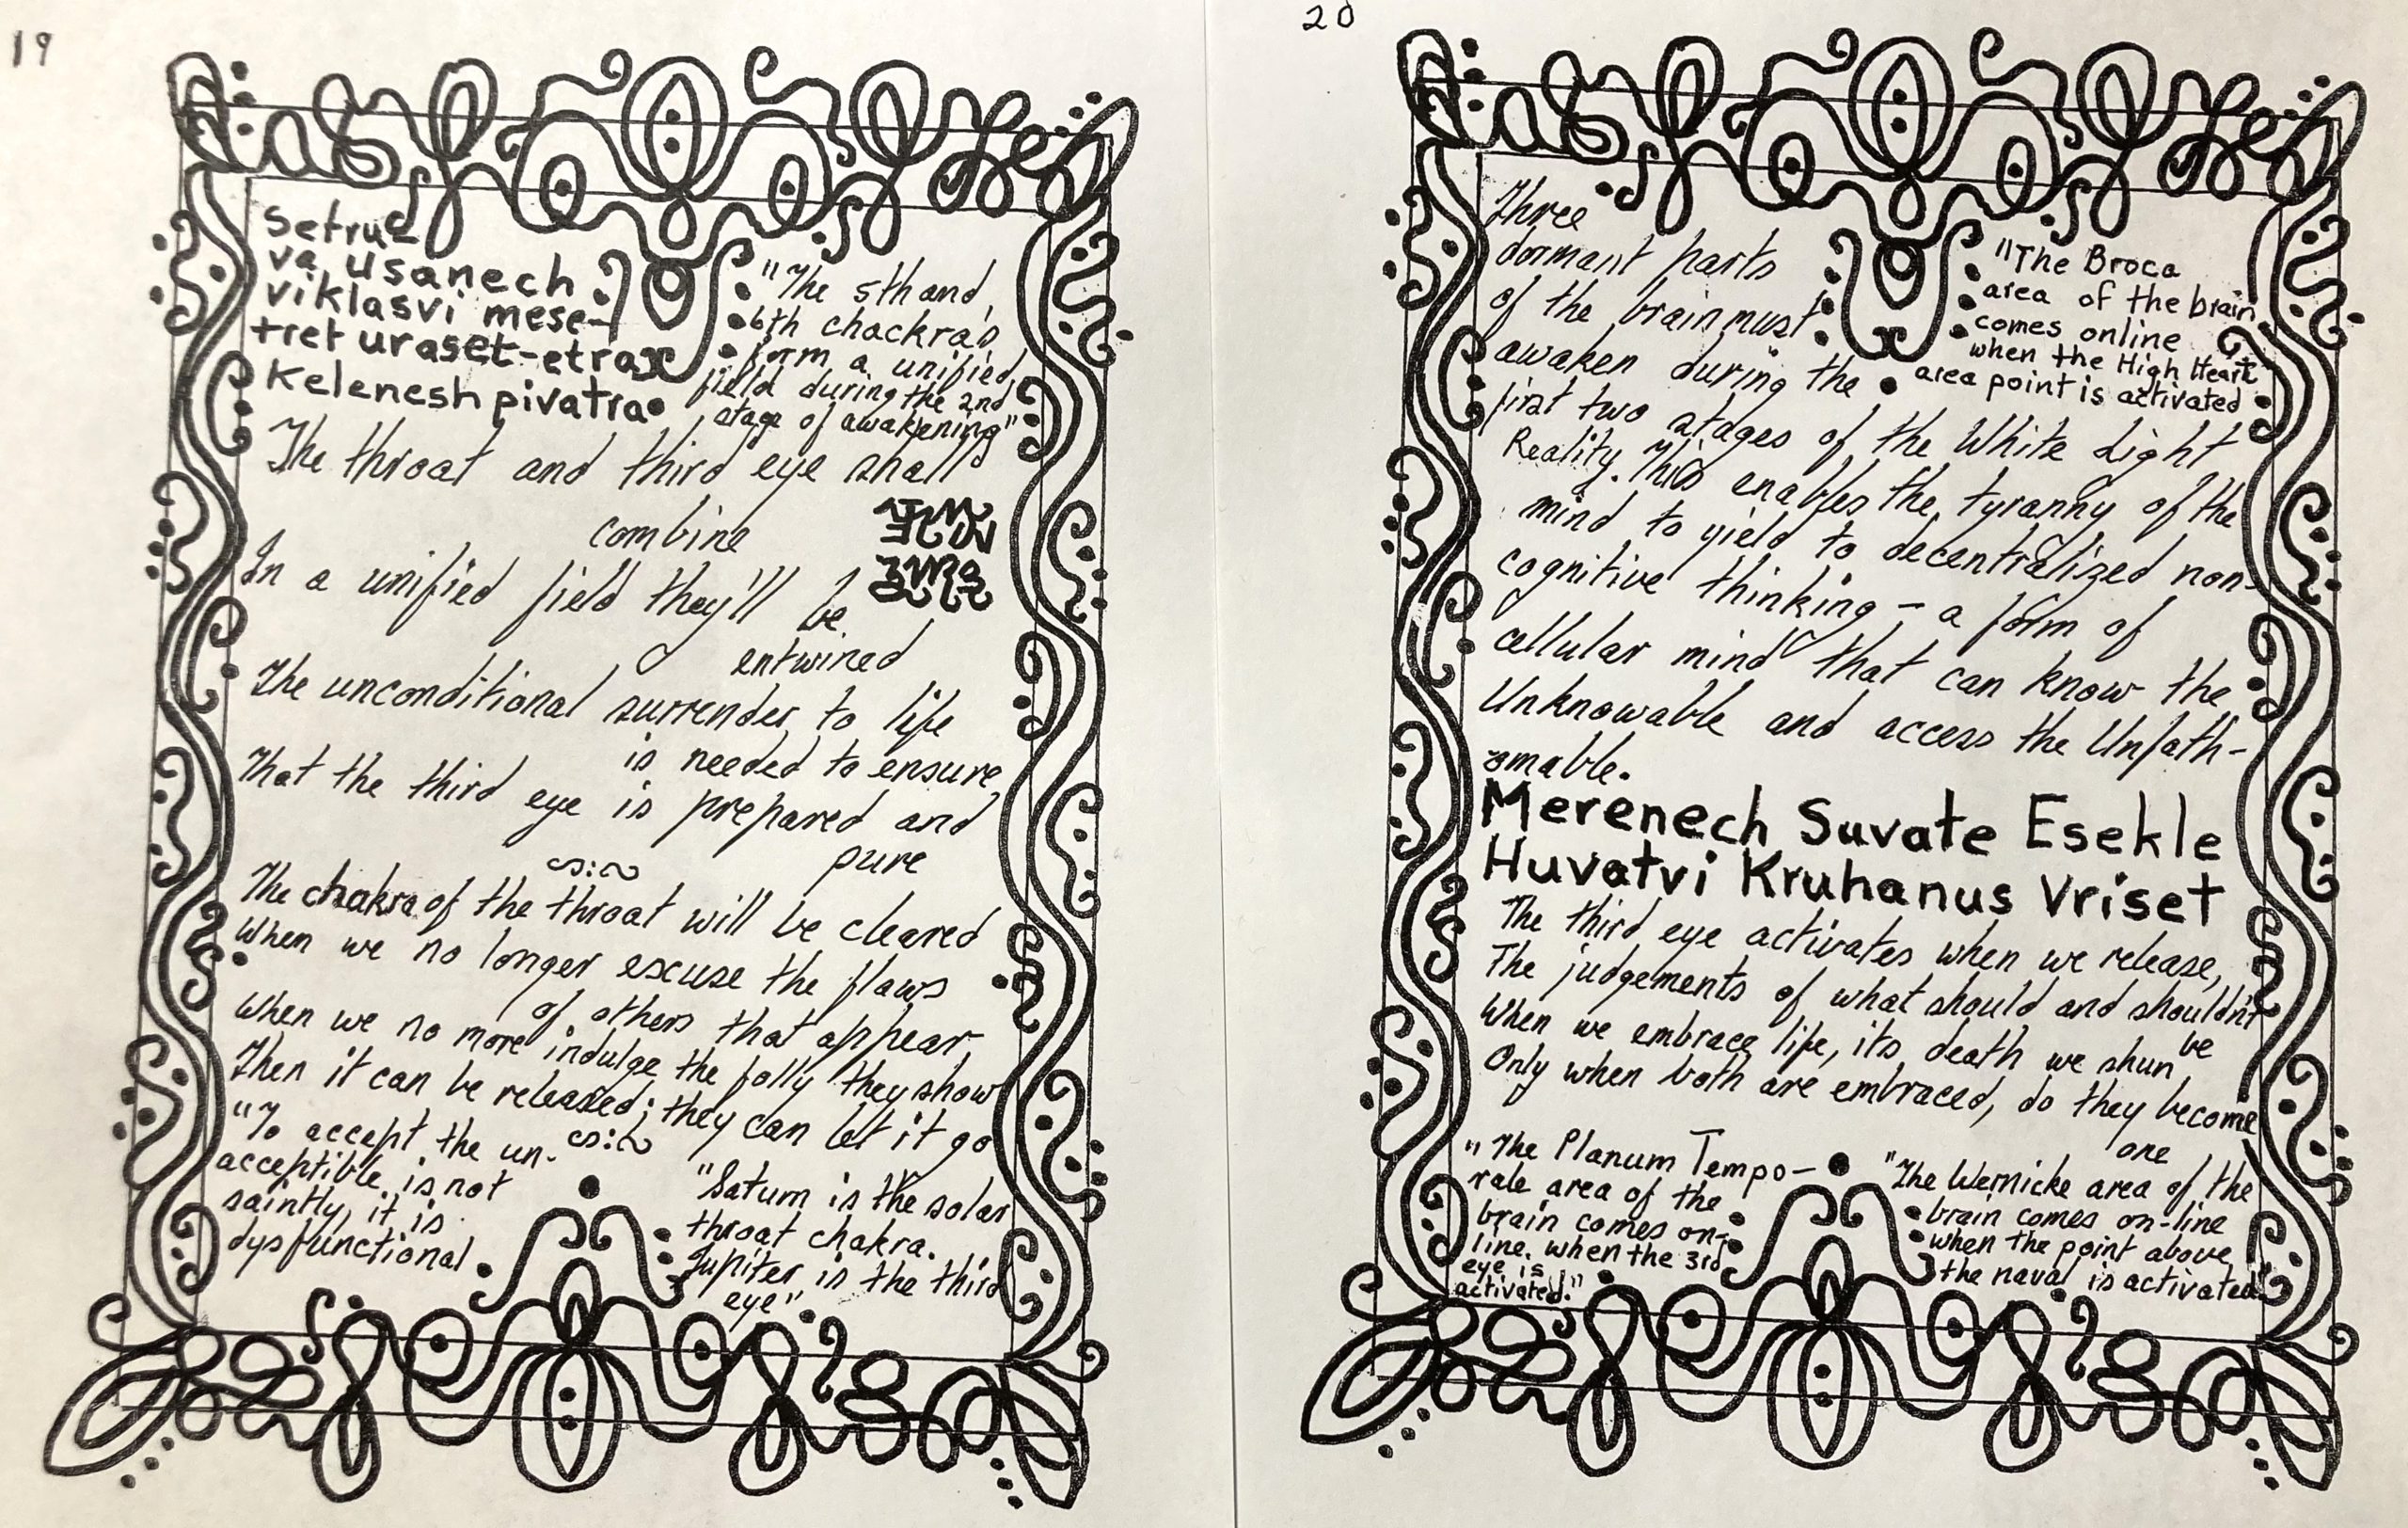 19
Setrue
va usanech
viklasvi mese-
tret uraset-etrax
Kelenesh pivatra
"The 5th and
6th chackra's
form a unified
field during the 2nd
stage of awakening"
The throat and third eye shall
combine
In a unified field they'll be
entwined
The unconditional surrender to life
is needed to ensure
That the third eye is prepared and
pure
The chakra of the throat will be cleared
When we no longer excuse the flaws
of others that appear
When we no more indulge the folly they show
Then it can be released; they can let it go
"To accept the un-
acceptible is not
saintly, it is
dysfunctional
"Saturn is the solar
throat chakra.
Jupiter is the third
eye"
20
Three
dormant parts
of the brain must
awaken during the
first two stages of the White Light
Reality. This enables the tyranny of the
mind to yield to decentralized non-
cognitive thinking – a form of
cellular mind that can know the
Unknowable and access the Unfath-
omable.
"The Broca
area of the brain
comes online
when the High Heart
area point is activated
Merenech Suvate Esekle
Huvatvi Kruhanus Vriset
The third eye activates when we release,
The judgements of what should and shouldn't
be
When we embrace life, its death we shun
Only when both are embraced, do they become
one
"The Planum Tempo-
rale area of the
brain comes on-
line when the 3rd
eye is
activated."
"The Wernicke area of the
brain comes on-line
when the point above
the naval is activated"